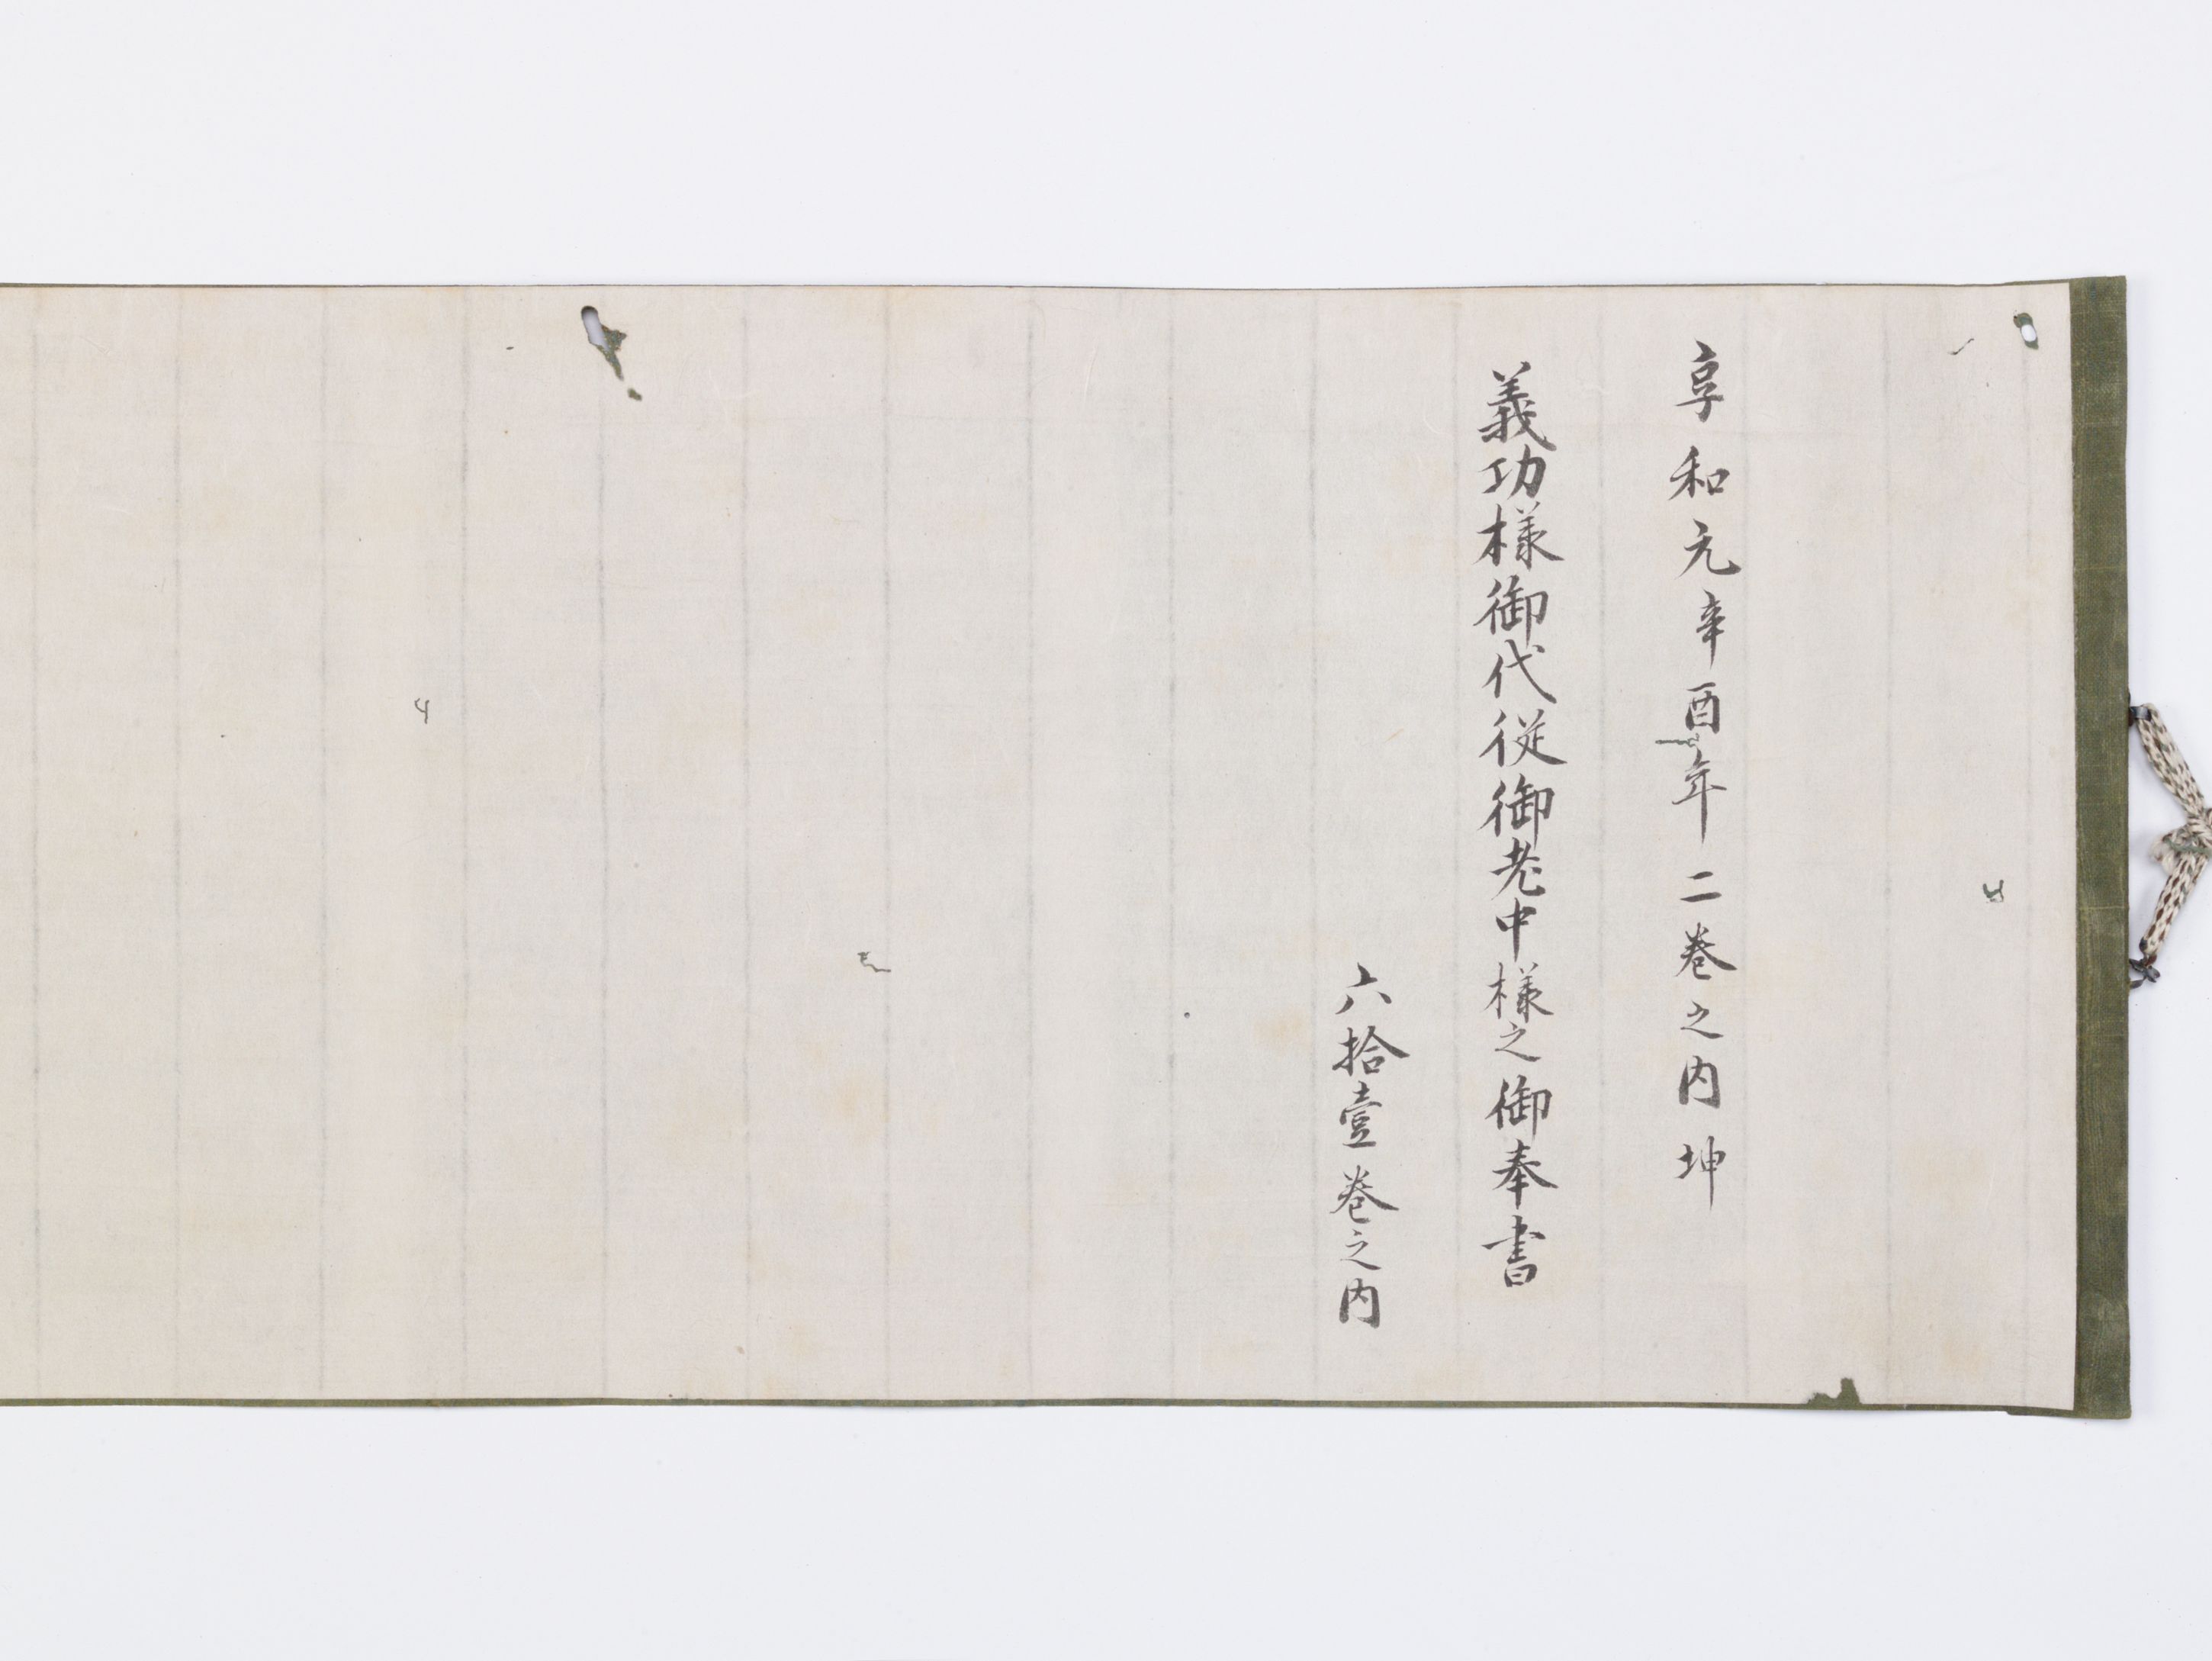 享和元辛酉年二巻之内坤
義功様御代従御老中様之御奉書
六拾壹巻之内